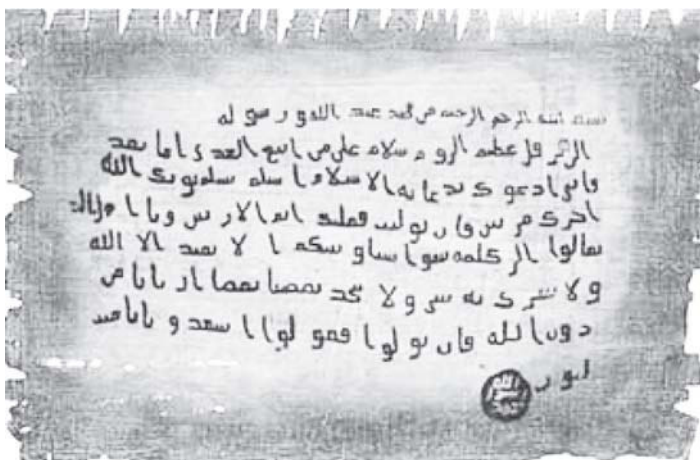 بسم الله الرحمن الرحيم من محمد عبد الله ورسوله
الى هرقل عظيم الروم سلام على من اتبع الهدى اما بعد
فانى ادعوك بدعاية الاسلام اسلم تسلم يوتك الله
اجرك مرتين فان توليت فعليك اثم الاريسين ويا اهل
تعالوا الى كلمة سوا بيننا وبينكم الا نعبد الا الله
ولا نشرك به شيئا ولا يتخذ بعضنا بعضا اربابا من
دون الله فان تولوا فقولوا اشهدوا بانا مسلـ
مون
الله
رسول
محمد